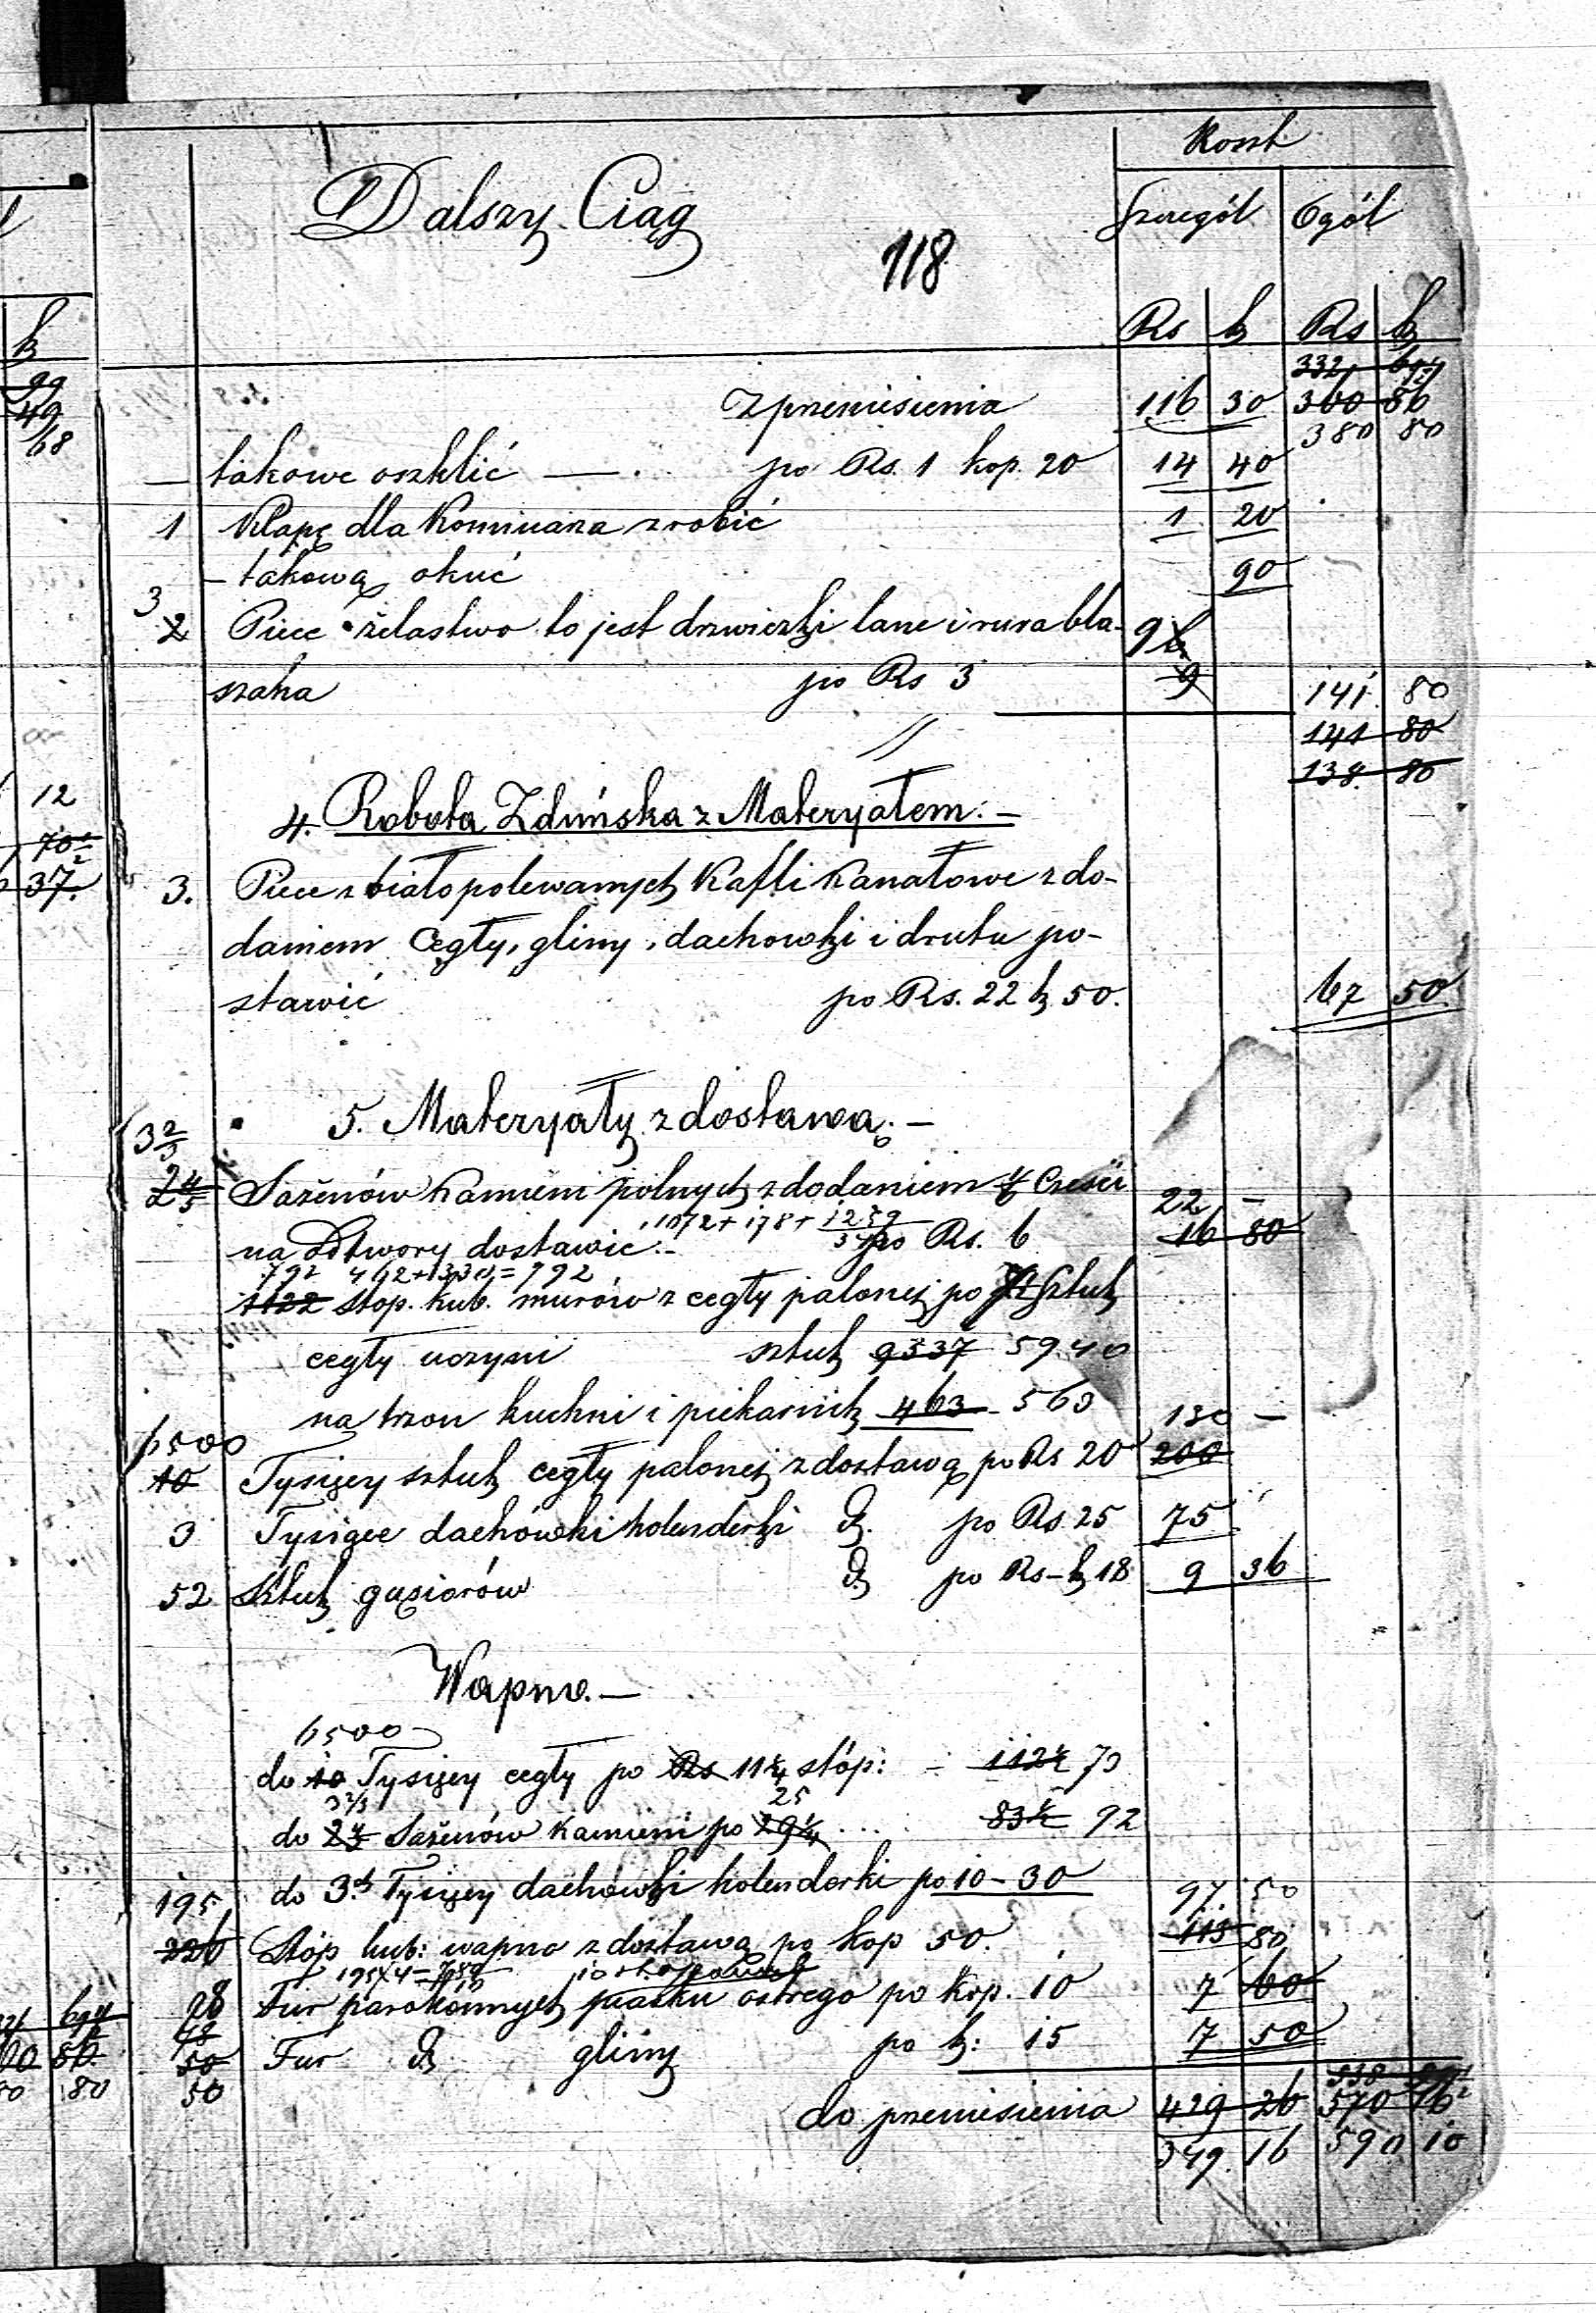 Koszt
Dalszy Ciąg
Szczegół Ogół
118
Rs k Rs k
k
99
49
68
332
z przeniesienia 116 30 360 86
380 80
— takowe oszklić — po Rs. 1 kop. 20 14 40
1 Klapę dla Kominiarza zrobić 1 20
— takową okuć 90
3
2 Piece żelastwo to jest drzwiczki lane i rura bla- 9
szana po Rs 3 9 141 80
141 80
138 80
12
37
4. Robota Zduńska z Materyałem: —
3. Piece z biało polewanych Kafli Kanałowe z do-
daniem Cegły, gliny, dachówki i drutu po-
stawić po Rs. 22 k 50. 67 50
5. Materyały z dostawą. —
3 2/3
2 4/5 Sażenów Kamieni polnych z dodaniem Części 22 —
1072 + 178 + 1259
na Otwory dostawić. — po Rs. 6 16 80
792 462 + 330 = 792
1122 stop. kub. murów z cegły palonej po sztuk
cegły uczyni sztuk 9337 5940
na trzon kuchni i piekarnik 463 560
6500 130 —
10 Tysięcy sztuk cegły palonej z dostawą po Rs 20 200
3 Tysiące dachówki holenderki d. po Rs. 25 75
52 Sztuk gąsiorów d. po Rs — k 18 9 36
Wapno. —
6500
do 10 Tysięcy cegły po Rs 11 1/4 stóp: — 112 1/2 73
3 2/3 25
do 2 4/5 Sażenów Kamieni po 29 1/4 . . . 83 1/2 92
do 3ch Tysięcy dachówki holenderki po 10 — 30
195 97 50
226 Stóp kub: wapna z dostawą po Kop 50. 113 80
195 x 4 = 780
78 Fur parokonnych piasku ostrego po Kop. 10 7 60
48
50 Fur d. gliny po k: 15 7 50
50
80 80
538
do przeniesienia 429 26 570 16
349 16 590 10